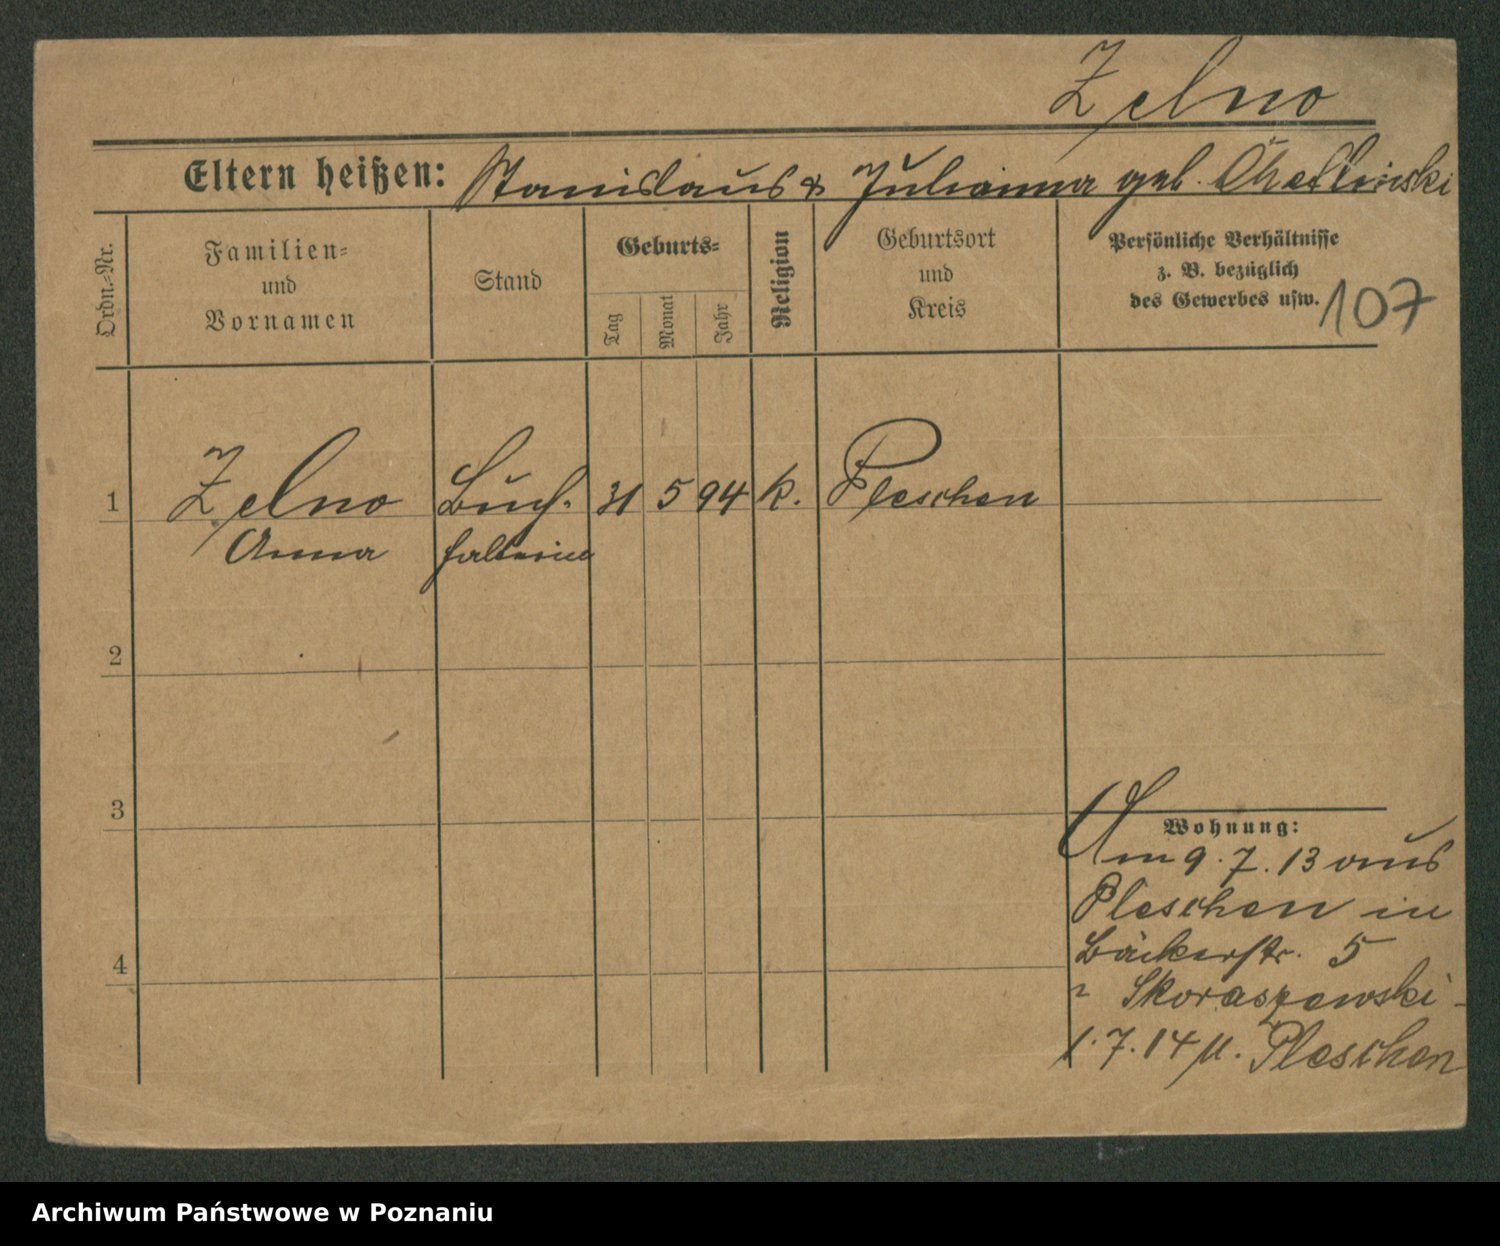 Zelno
Eltern heißen: Stanislaus & Julianna geb.
Ordn.-Nr.
Familien-
und
Vornamen
Stand
Geburts-
Tag
Monat
Jahr
Religion
Geburtsort
und
Kreis
Persönliche Verhältnisse
z. B. bezüglich
des Gewerbes usw.
107
1 Zelno Buch- 31 5 94 k. Pleschen
Anna halterin
2
3
4
Wohnung:
Am 9.7.13 aus
Pleschen in
Bäckerstr. 5
Skoraszewski
1.7.14 n. Pleschen
Archiwum Państwowe w Poznaniu